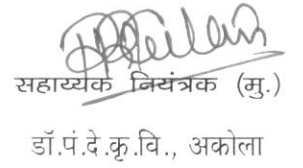 सहाय्यक नियंत्रक (मु.)
डॉ.पं.दे.कृ.वि., अकोला